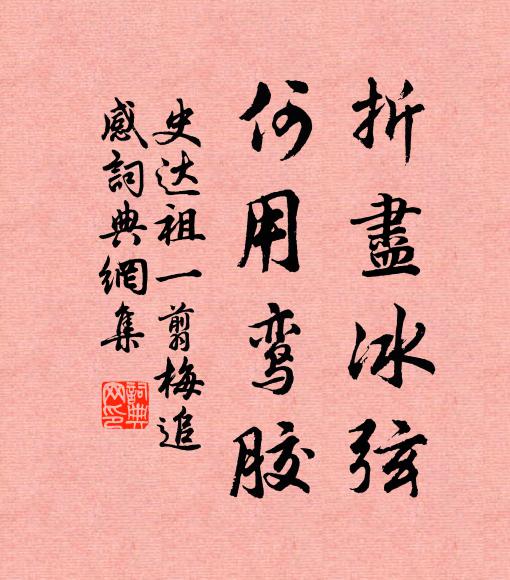 折盡冰弦
何用鸾胶
史达祖一剪梅追
感詞典網集
詞典
网印